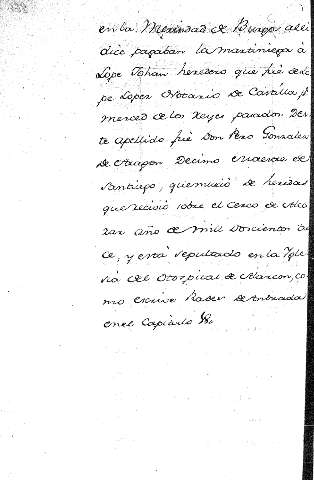 en la Merindad de Burgos alli
dice pagaban la martiniega à
Lope Johan heredero que fue de Lo
pe Lopez Notario de Castilla p.r
merced de los Reyes pasados Des
te apellido fue Don Pero Gonzalez
de Aragon Decimo Maestre de
Santiago, que murió de heridas
que recivió sobre el Cerco de Alca
raz año de mil Doscientos tre
ce, y está sepultado en la Igle
sia del Hospital de Alarcon, co
mo escrive Rades de Andrada
en el Capitulo 18.